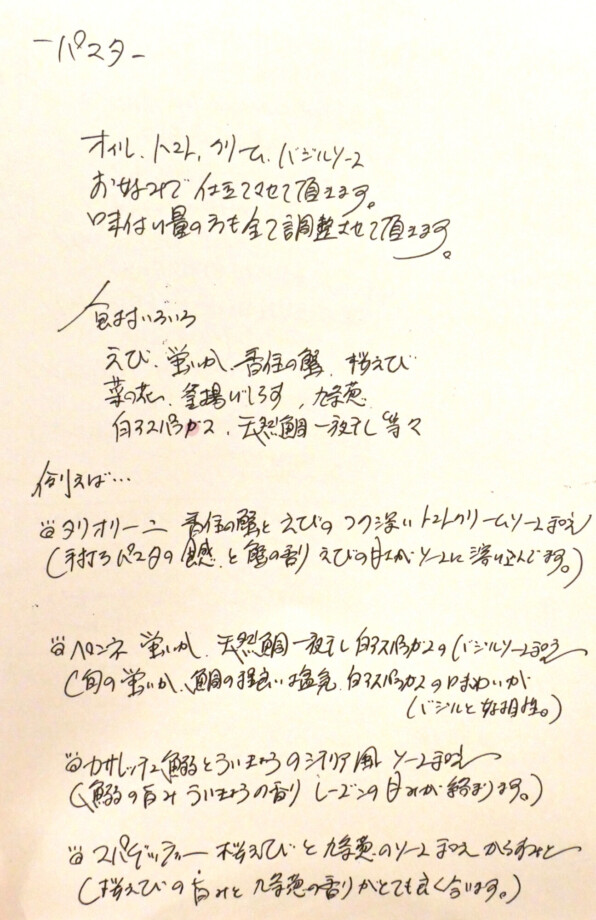 ーパスター
オイル、トマト、クリーム、バジルソース
お好みで仕立てさせて頂きます。
味付け量の方も全て調整させて頂きます。
食材いろいろ
えび、蛍いか、香住の蟹、桜えび
菜の花、釜揚げしらす、九条葱
白アスパラガス、天然鯛一夜干し等々
例えば…
タリオリーニ 香住の蟹とえびのコク深いトマトクリームソース
(手打ちパスタの食感と蟹の香り えびの甘みがソースに溶け込んでます。)
ペンネ 蛍いか、天然鯛一夜干し 白アスパラガスのバジルソース
(旬の蛍いか、鯛の程良い塩気、白アスパラガスの味わいが
バジルと好相性。)
カサレッチェ 鰯とういきょうのシチリア風 ソース
(鰯の旨み ういきょうの香り レーズンの甘みが絡まります。)
スパゲッティー 桜えびと九条葱のソース からすみと
(桜えびの旨みと九条葱の香りがとても良く合います。)